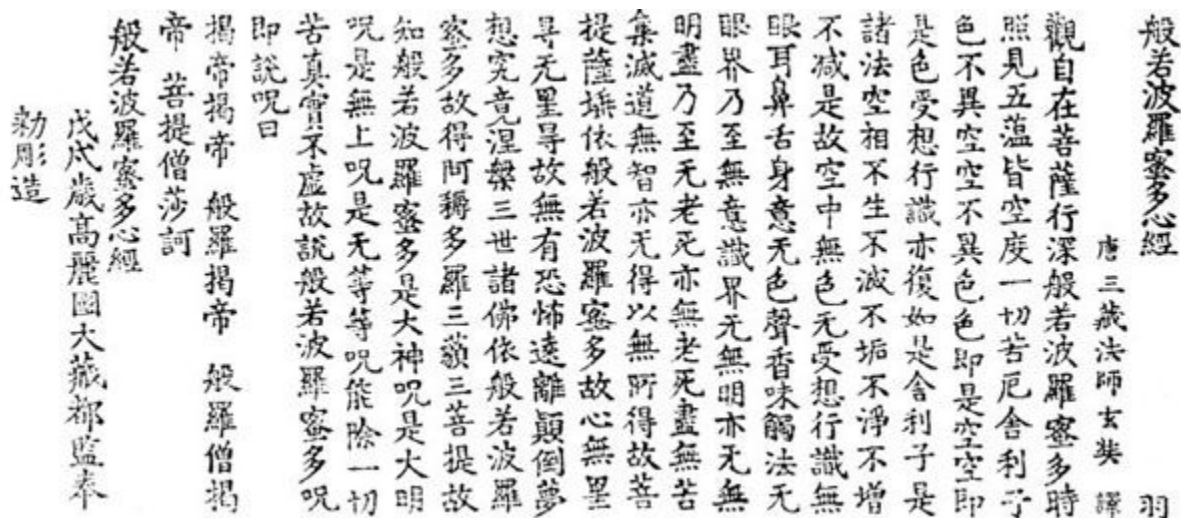 般若波羅蜜多心經 羽
唐三藏法師玄奘 譯
觀自在菩薩行深般若波羅蜜多時
照見五蕰皆空度一切苦厄舍利子
色不異空空不異色色即是空空即
是色受想行識亦復如是舍利子是
諸法空相不生不滅不垢不淨不增
不减是故空中無色无受想行識無
眼耳鼻舌身意无色聲香味觸法无
眼界乃至無意識界无無明亦无無
明盡乃至无老死亦無老死盡無苦
集滅道無智亦无得以無所得故菩
提薩埵依般若波羅蜜多故心無罣
㝵无罣㝵故無有恐怖遠離顛倒夢
想究竟涅槃三世諸佛依般若波羅
蜜多故得阿耨多羅三藐三菩提故
知般若波羅蜜多是大神呪是大明
呪是無上呪是无等等呪能除一切
苦真實不虛故說般若波羅蜜多呪
即說呪曰
揭帝揭帝 般羅揭帝 般羅僧揭
帝 菩提僧莎訶
般若波羅蜜多心經
戊戌歲高麗國大藏都監奉
勑彫造